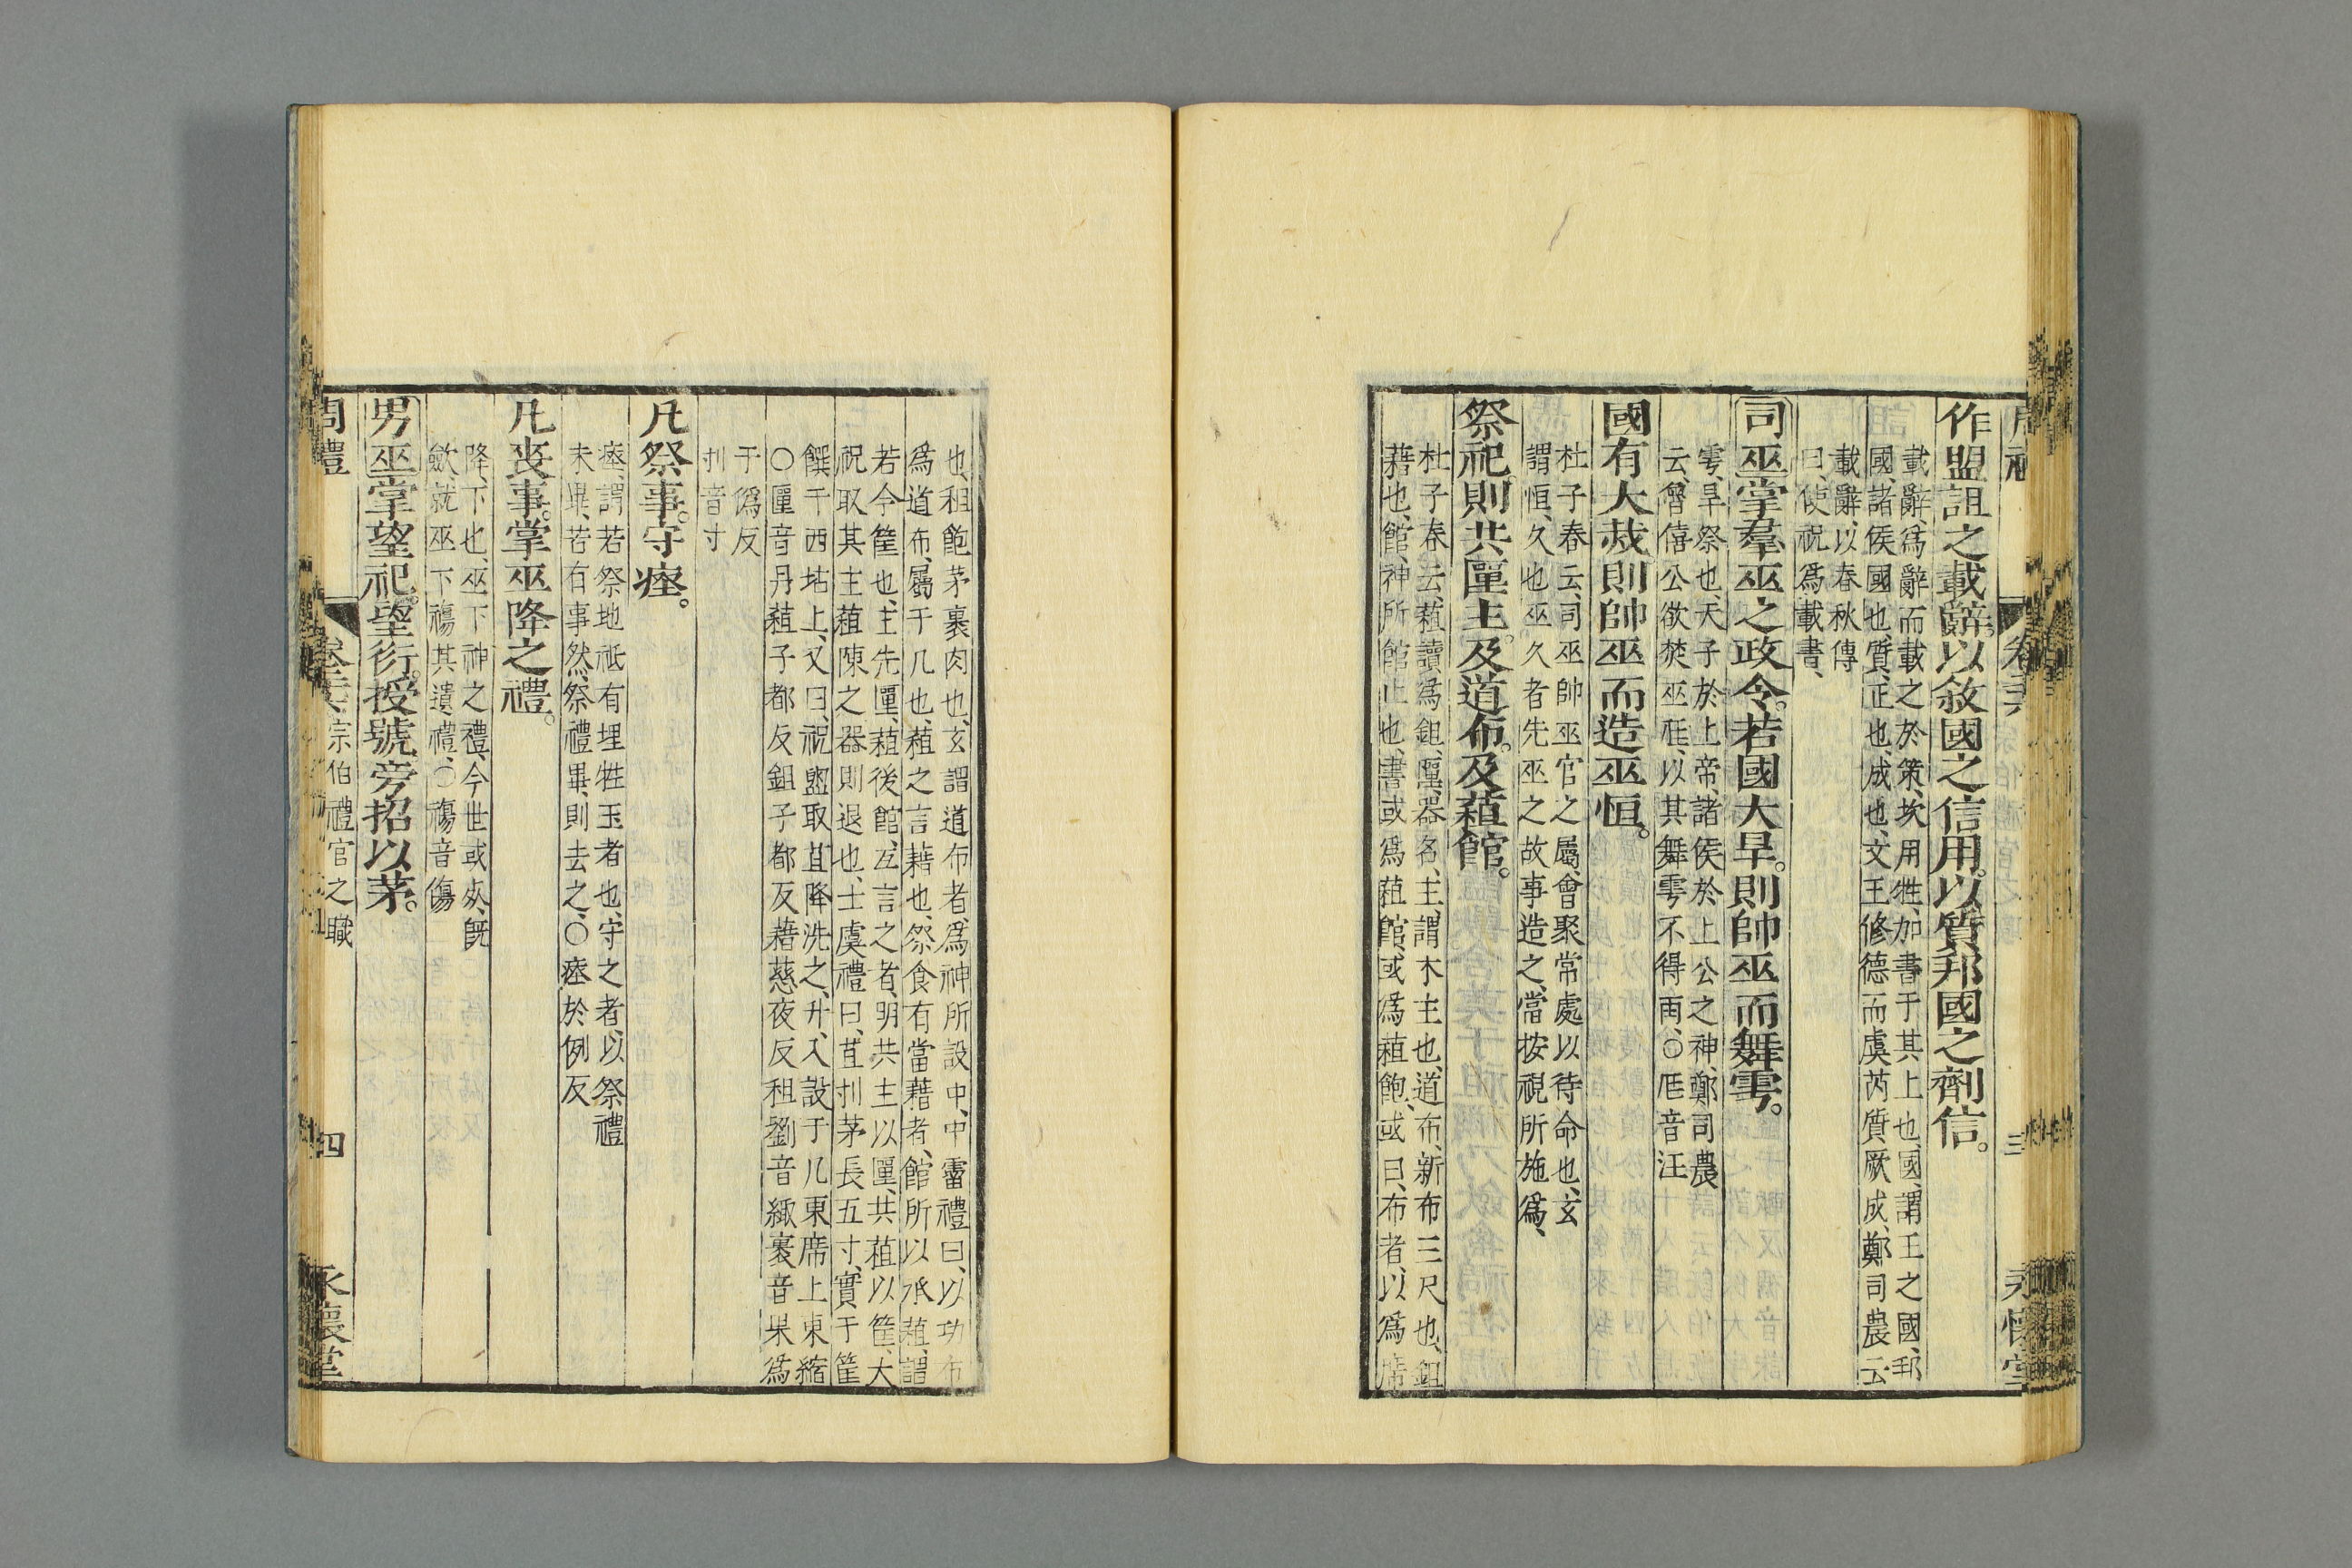 作盟詛之載辭以敘國之信用。以質邦國之劑信。
載辭、爲辭而載之於策、坎用牲、加書于其上也、國、謂王之國、邦
國、諸侯國也、質、正也、成也、文王修德而虞芮質厥成、鄭司農云
載辭、以春秋傳
曰、使祝爲載書、
司巫掌羣巫之政令。若國大旱。則帥巫而舞雩。
雩、旱祭也、天子於上帝、諸侯於上公之神、鄭司農
云、魯僖公欲焚巫尪、以其舞雩不得雨、○尫音汪
國有大烖則帥巫而造巫恒。
杜子春云、司巫帥巫官之屬、會聚常處以待命也、玄
謂恒、久也巫久者先巫之故事造之、當按視所施爲、
祭祀。則共匰主。及道布。及蒩館。
杜子春云、蒩讀爲鉏、匰、器名、主、謂木主也、道布、新布三尺也、鉏
藉也、館、神所館止也、書或爲蒩館、或爲蒩飽、或曰、布者、以爲席
也、租飽茅裹肉也、玄謂道布者、爲神所設巾、中霤禮曰、以功布
爲道布、屬于几也、蒩之言藉也、祭食有當藉者、館所以承蒩、謂
若今筐也、主先匰、蒩後館、互言之者、明共主以匰、共蒩以筐、大
祝取其主蒩陳之器則退也、士虞禮曰、苴刌茅長五寸、實于筐
饌于西坫上、又曰、祝盥取苴降洗之、升、入設于几東席上東縮
○匰音丹蒩子都反鉏子都反藉慈夜反租劉音緅裹音果爲
于僞反
刌音寸
凡祭事。守瘞。
瘞、謂若祭地祇有埋牲玉者也、守之者、以祭禮
未畢、若有事然、祭禮畢、則去之、○瘞於例反
凡喪事。掌巫降之禮。
降、下也、巫下神之禮、今世或死、旣
斂、就巫下禓其遺禮、○禓音傷
男巫掌望祀。望衍。授號、旁招以茅。
周禮 卷二十六 宗伯禮官之職 四 永懷堂